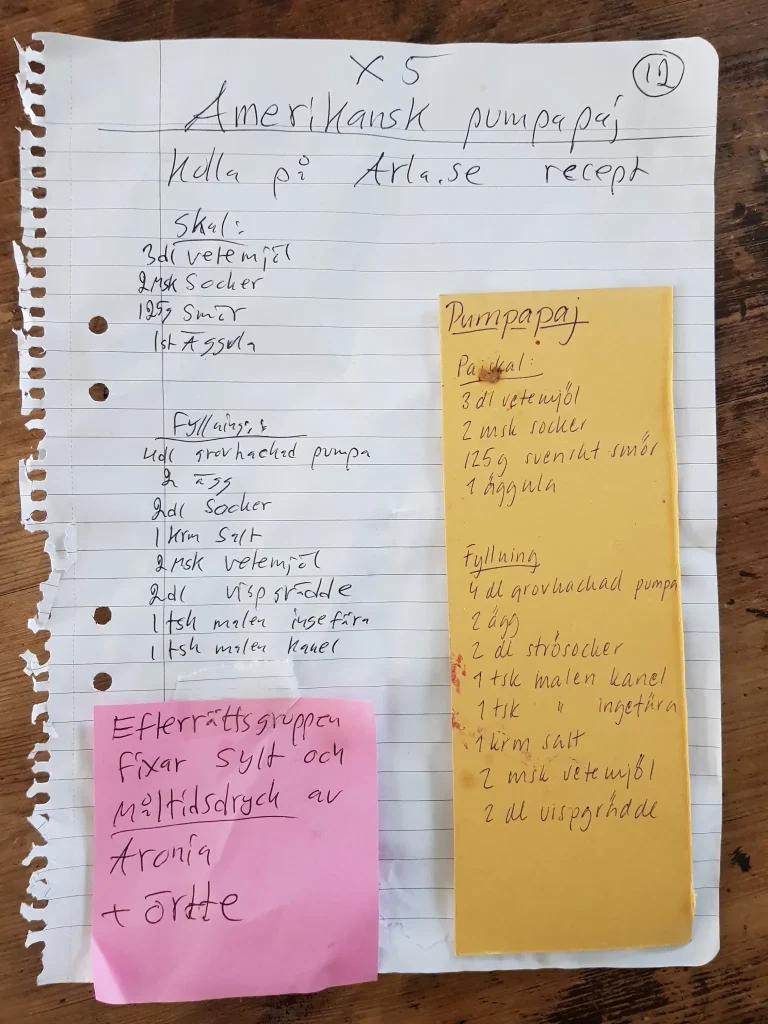 X 5
12
Amerikansk pumpapaj
Kolla på Arla.se recept
Skal:
3dl vetemjöl
2 msk Socker
125g Smör
1st Äggula
Fyllning:
4dl grovhackad pumpa
2 ägg
2dl Socker
1 krm Salt
2 msk vetemjöl
2dl vispgrädde
1 tsk malen ingefära
1 tsk malen kanel
Efterrättsgruppen
fixar sylt och
måltidsdryck av
Aronia
+ örtte
Pumpapaj
Pajskal:
3 dl vetemjöl
2 msk socker
125g svenskt smör
1 äggula
Fyllning
4 dl grovhackad pumpa
2 ägg
2 dl strösocker
1 tsk malen kanel
1 tsk " ingefära
1 krm salt
2 msk vetemjöl
2 dl vispgrädde